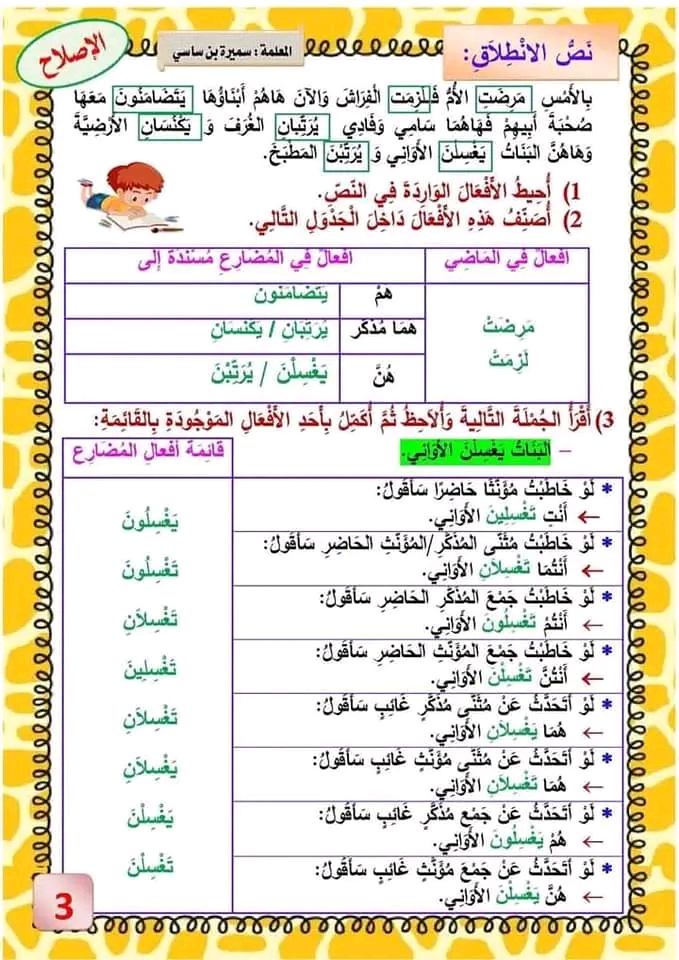 الإصلاح
المعلمة : سميرة بن ساسي
نَصُّ الانْطِلاَقِ:
بِالأَمْسِ مَرِضَتِ الأُمُّ فَلَزِمَت الْفِرَاشَ وَالآنَ هَاهُمْ أَبْنَاؤُهَا يَتَضَامَنُونَ مَعَهَا
صُحْبَةَ أَبِيهِمْ فَهَاهُمَا سَامِي وَفَادِي يُرَتِّبَانِ الغُرَفَ وَ يَكْنُسَانِ الأَرْضِيَّةَ
وَهَاهُنَّ البَنَاتُ يَغْسِلْنَ الأَوَانِي وَ يُرَتِّبْنَ المَطْبَخَ.
1) أُحِيطُ الأَفْعَالَ الوَارِدَةَ فِي النَصِّ.
2) أُصَنِّفُ هَذِهِ الأَفْعَالَ دَاخِلَ الْجَدْوَلِ التَّالِي.
أفعالٌ في المَاضِي
أفعالٌ في المُضَارِعِ مُسْنَدَةٌ إلَى
مَرِضَتْ
لَزِمَتْ
هُمْ
يَتَضَامَنُونَ
هُمَا مُذَكَّر
يُرَتِّبَانِ / يَكْنُسَانِ
هُنَّ
يَغْسِلْنَ / يُرَتِّبْنَ
3) أَقْرَأُ الجُمْلَةَ التَّالِيةَ وَأُلاَحِظُ ثُمَّ أُكَمِّلُ بِأَحَدِ الأَفْعَالِ المَوْجُودَةِ بِالقَائِمَةِ:
– البَنَاتُ يَغْسِلْنَ الأَوَانِي.
قَائِمَة أفعال المُضَارِع
* لَوْ خَاطَبْتُ مُؤَنَّثًا حَاضِرًا سَأَقُولُ:
← أَنْتِ تَغْسِلِينَ الأَوَانِي.
* لَوْ خَاطَبْتُ مُثَنَّى المُذَكَّرِ/المُؤَنَّثِ الحَاضِرِ سَأَقُولُ:
← أَنْتُمَا تَغْسِلاَنِ الأَوَانِي.
* لَوْ خَاطَبْتُ جَمْعَ المُذَكَّرِ الحَاضِرِ سَأَقُولُ:
← أَنْتُمْ تَغْسِلُونَ الأَوَانِي.
* لَوْ خَاطَبْتُ جَمْعَ المُؤَنَّثِ الحَاضِرِ سَأَقُولُ:
← أَنْتُنَّ تَغْسِلْنَ الأَوَانِي.
* لَوْ أَتَحَدَّثُ عَنْ مُثَنَّى مُذَكَّرٍ غَائِبٍ سَأَقُولُ:
← هُمَا يَغْسِلاَنِ الأَوَانِي.
* لَوْ أَتَحَدَّثُ عَنْ مُثَنَّى مُؤَنَّثٍ غَائِبٍ سَأَقُولُ:
← هُمَا تَغْسِلاَنِ الأَوَانِي.
* لَوْ أَتَحَدَّثُ عَنْ جَمْعِ مُذَكَّرٍ غَائِبٍ سَأَقُولُ:
← هُمْ يَغْسِلُونَ الأَوَانِي.
* لَوْ أَتَحَدَّثُ عَنْ جَمْعِ مُؤَنَّثٍ غَائِبٍ سَأَقُولُ:
← هُنَّ يَغْسِلْنَ الأَوَانِي.
يَغْسِلُونَ
تَغْسِلُونَ
تَغْسِلاَنِ
تَغْسِلِينَ
تَغْسِلاَنِ
يَغْسِلاَنِ
يَغْسِلْنَ
تَغْسِلْنَ
3